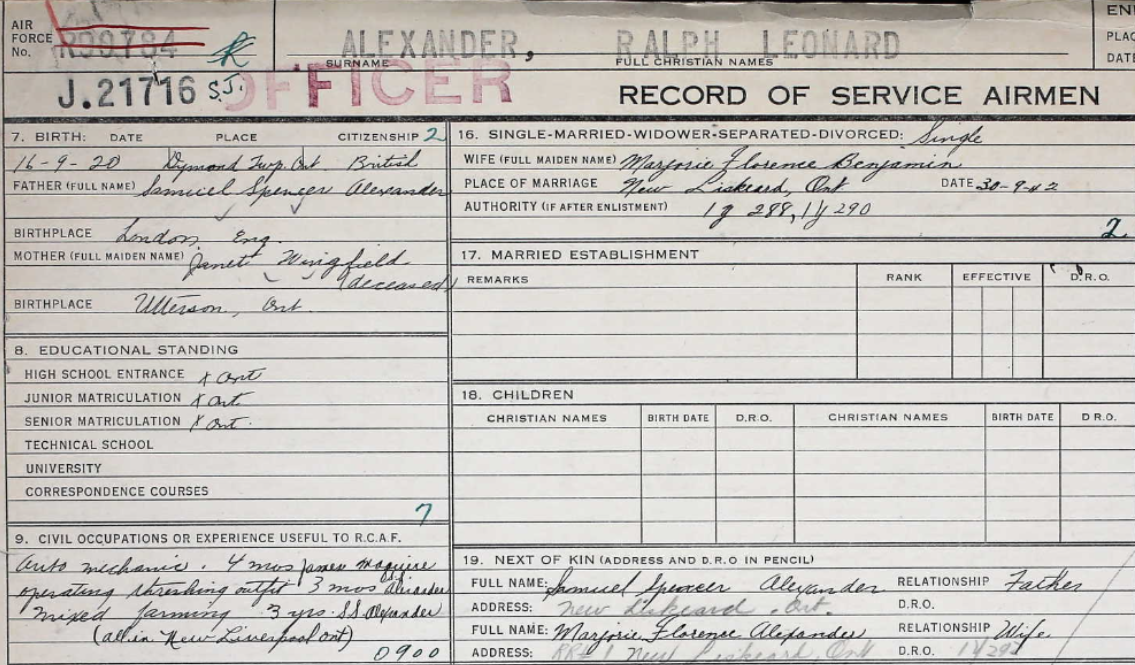 AIR FORCE No. R99784
ALEXANDER, RALPH LEONARD
SURNAME FULL CHRISTIAN NAMES
J.21716 S.J. OFFICER
RECORD OF SERVICE AIRMEN
EN
PLAC
DATE
7. BIRTH: DATE PLACE CITIZENSHIP 2
16-9-20 Dymond Twp. Ont British
FATHER (FULL NAME) Samuel Spencer Alexander
BIRTHPLACE London, Eng.
MOTHER (FULL MAIDEN NAME) Janet Wingfield
(deceased)
BIRTHPLACE Utterson, Ont.
8. EDUCATIONAL STANDING
HIGH SCHOOL ENTRANCE x Ont
JUNIOR MATRICULATION x Ont.
SENIOR MATRICULATION x Ont.
TECHNICAL SCHOOL
UNIVERSITY
CORRESPONDENCE COURSES
7
9. CIVIL OCCUPATIONS OR EXPERIENCE USEFUL TO R.C.A.F.
Auto mechanic. 4 mos James Maguire
operating threshing outfit 3 mos Alexander
mixed farming 3 yrs. S.S. Alexander
(all in New Liverpool Ont)
0900
16. SINGLE-MARRIED-WIDOWER-SEPARATED-DIVORCED: Single
WIFE (FULL MAIDEN NAME) Marjorie Florence Benjamin
PLACE OF MARRIAGE New Liskeard, Ont DATE 30-9-42
AUTHORITY (IF AFTER ENLISTMENT) 1g 288, 1y 290
2
17. MARRIED ESTABLISHMENT
REMARKS RANK EFFECTIVE D.R.O.
18. CHILDREN
CHRISTIAN NAMES BIRTH DATE D.R.O. CHRISTIAN NAMES BIRTH DATE D R.O.
19. NEXT OF KIN (ADDRESS AND D.R.O IN PENCIL)
FULL NAME: Samuel Spencer Alexander RELATIONSHIP Father
ADDRESS: New Liskeard, Ont. D.R.O.
FULL NAME: Marjorie Florence Alexander RELATIONSHIP Wife.
ADDRESS: RR# 1 New Liskeard, Ont D.R.O.